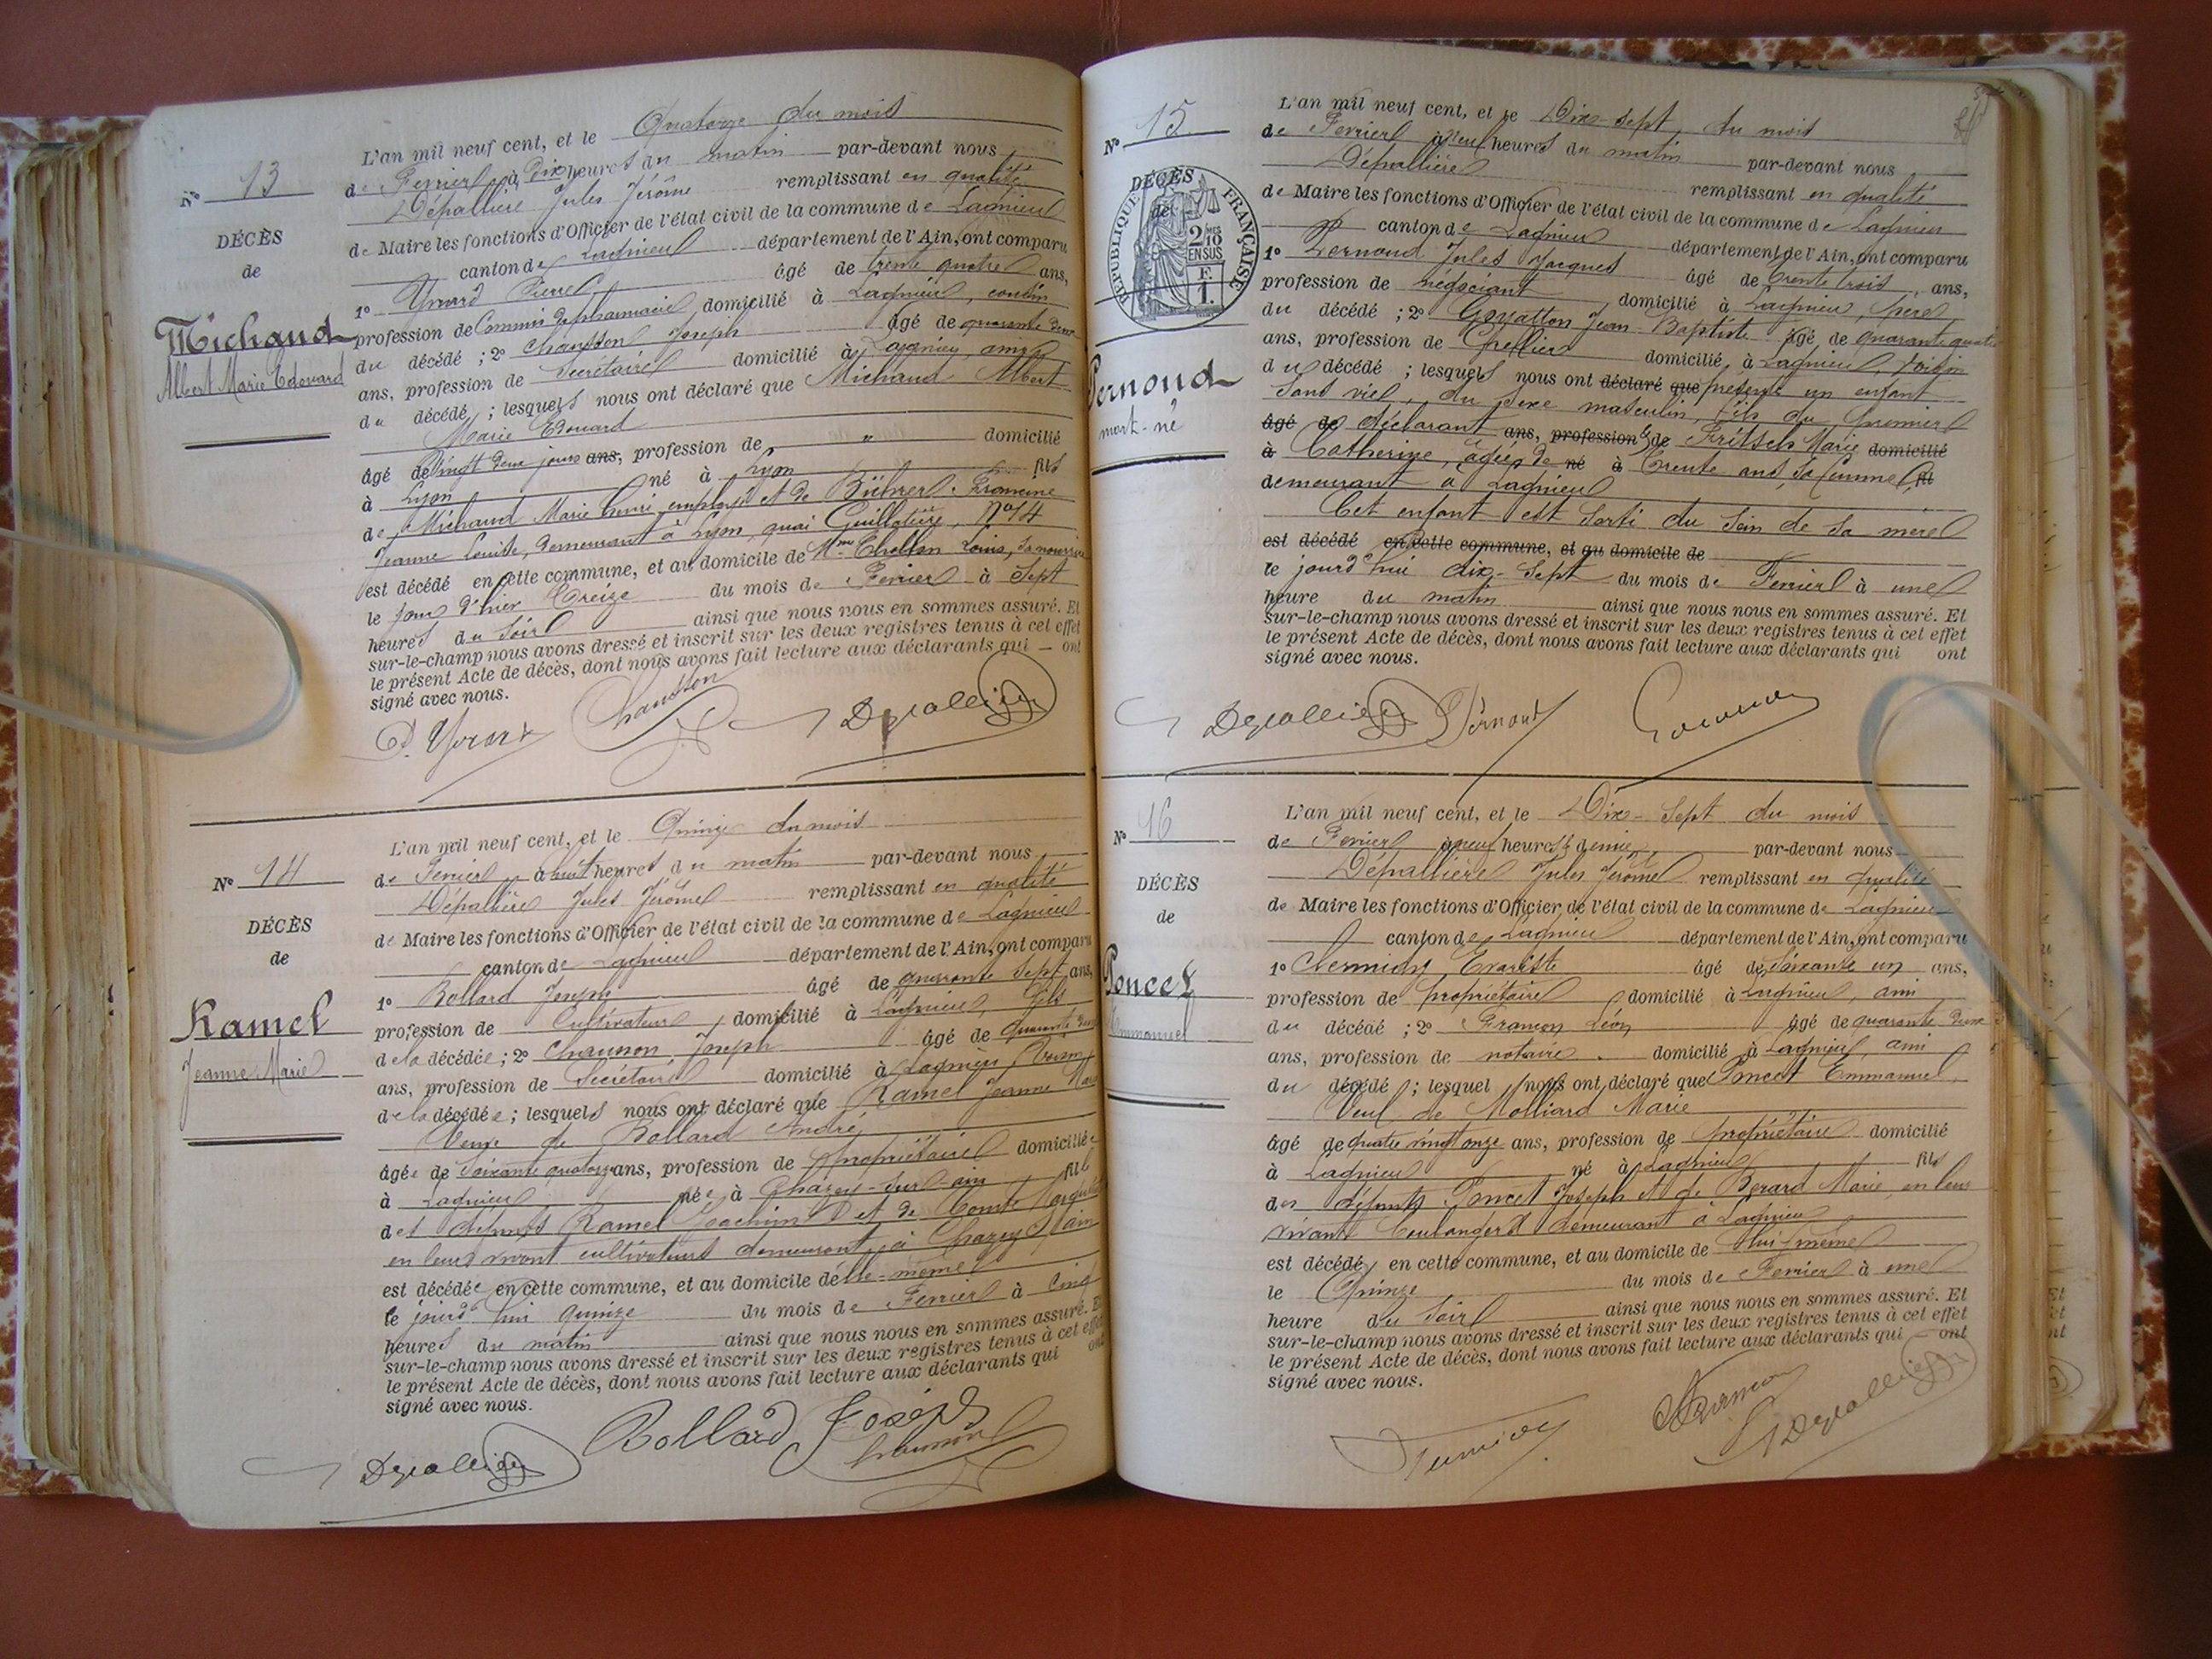 N° 13
DÉCÈS
de
Michaud
Albert Marie Edouard
L'an mil neuf cent, et le Quatorze du mois
de Fevrier à Dix heures du matin par-devant nous
Dépallière Jules Jérôme remplissant en qualité
de Maire les fonctions d'Officier de l'état civil de la commune de Lagnieu
canton de Lagnieu département de l'Ain, ont comparu
1° Pierre âgé de trente quatre ans,
profession de Commis de pharmacie domicilié à Lagnieu, cousin
du décédé ; 2° Chausson Joseph âgé de quarante deux
ans, profession de Secrétaire domicilié à Lagnieu, ami
du décédé ; lesquels nous ont déclaré que Michaud Albert
Marie Edouard
âgé de Vingt deux jours ans, profession de " domicilié
à Lyon né à Lyon fils
de Michaud Marie Henri employé et de Bührer Francine
Jeanne Louise, demeurant à Lyon, quai Guillotière, N° 14
est décédé en cette commune, et au domicile de Mme Louis, sa nourrice
le jour d'hier Treize du mois de Fevrier à Sept
heures du soir ainsi que nous nous en sommes assuré. Et
sur-le-champ nous avons dressé et inscrit sur les deux registres tenus à cet effet
le présent Acte de décès, dont nous avons fait lecture aux déclarants qui ont
signé avec nous.
Chausson Depallière
N° 14
DÉCÈS
de
Ramel
Jeanne Marie
L'an mil neuf cent, et le Quinze du mois
de Fevrier à huit heures du matin par-devant nous
Dépallière Jules Jérôme remplissant en qualité
de Maire les fonctions d'Officier de l'état civil de la commune de Lagnieu
canton de Lagnieu département de l'Ain, ont comparu
1° Bollard Joseph âgé de quarante sept ans,
profession de Cultivateur domicilié à Lagnieu, fils
de la décédée ; 2° Chausson Joseph âgé de quarante deux
ans, profession de Secrétaire domicilié à Lagnieu, Voisin
de la décédée ; lesquels nous ont déclaré que Ramel Jeanne Marie
Veuve de Bollard André
âgée de Soixante quatorze ans, profession de propriétaire domiciliée
à Lagnieu née à Chazey-sur-ain fille
des défunts Ramel Joachim et de Comte
en leur vivant cultivateurs demeurant à Chazey S/ ain
est décédée en cette commune, et au domicile d'elle-même
le jourd'hui quinze du mois de Fevrier à Cinq
heures du matin ainsi que nous nous en sommes assuré. Et
sur-le-champ nous avons dressé et inscrit sur les deux registres tenus à cet effet
le présent Acte de décès, dont nous avons fait lecture aux déclarants qui ont
signé avec nous.
Depallière Bollard Joseph
Chausson
N° 15
DÉCÈS
de
RÉPUBLIQUE FRANÇAISE
2/10 MES
EN SUS
F.
1.
Pernoud
mort-né
L'an mil neuf cent, et le Dix-sept, du mois
de Fevrier à neuf heures du matin par-devant nous
Dépallière remplissant en qualité
de Maire les fonctions d'Officier de l'état civil de la commune de Lagnieu
canton de Lagnieu département de l'Ain, ont comparu
1° Pernoud Jules Jacques âgé de Trente trois ans,
profession de Négociant domicilié à Lagnieu, père
du décédé ; 2° Jean-Baptiste âgé de quarante quatre
ans, profession de Greffier domicilié à Lagnieu, voisin
du décédé ; lesquels nous ont déclaré que présenté un enfant
sans vie, du sexe masculin, fils du premier
âgé de déclarant ans, profession & de Fritsch Marie domicilié
à Catherine, âgée de né à Trente ans, sa femme, fil
demeurant à Lagnieu
Cet enfant est sorti du sein de sa mère
est décédé en cette commune, et au domicile de
le jourd'hui dix-sept du mois de Fevrier à une
heure du matin ainsi que nous nous en sommes assuré. Et
sur-le-champ nous avons dressé et inscrit sur les deux registres tenus à cet effet
le présent Acte de décès, dont nous avons fait lecture aux déclarants qui ont
signé avec nous.
Depallière Pernoud
N° 16
DÉCÈS
de
Poncet
Emmanuel
L'an mil neuf cent, et le Dix-sept du mois
de Fevrier à neuf heures & demie par-devant nous
Dépallière Jules Jérôme remplissant en qualité
de Maire les fonctions d'Officier de l'état civil de la commune de Lagnieu
canton de Lagnieu département de l'Ain, ont comparu
1° Evariste âgé de soixante un ans,
profession de propriétaire domicilié à Lagnieu, ami
du décédé ; 2° Francon Léon âgé de quarante deux
ans, profession de notaire domicilié à Lagnieu, ami
du décédé ; lesquel nous ont déclaré que Poncet Emmanuel,
Veuf de Molliard Marie
âgé de quatre vingt onze ans, profession de propriétaire domicilié
à Lagnieu né à Lagnieu fils
des défunts Poncet Joseph et de Berard Marie, en leur
vivant boulangers demeurant à Lagnieu
est décédé en cette commune, et au domicile de lui-même
le Quinze du mois de Fevrier à une
heure du soir ainsi que nous nous en sommes assuré. Et
sur-le-champ nous avons dressé et inscrit sur les deux registres tenus à cet effet
le présent Acte de décès, dont nous avons fait lecture aux déclarants qui ont
signé avec nous.
Francon
Depallière